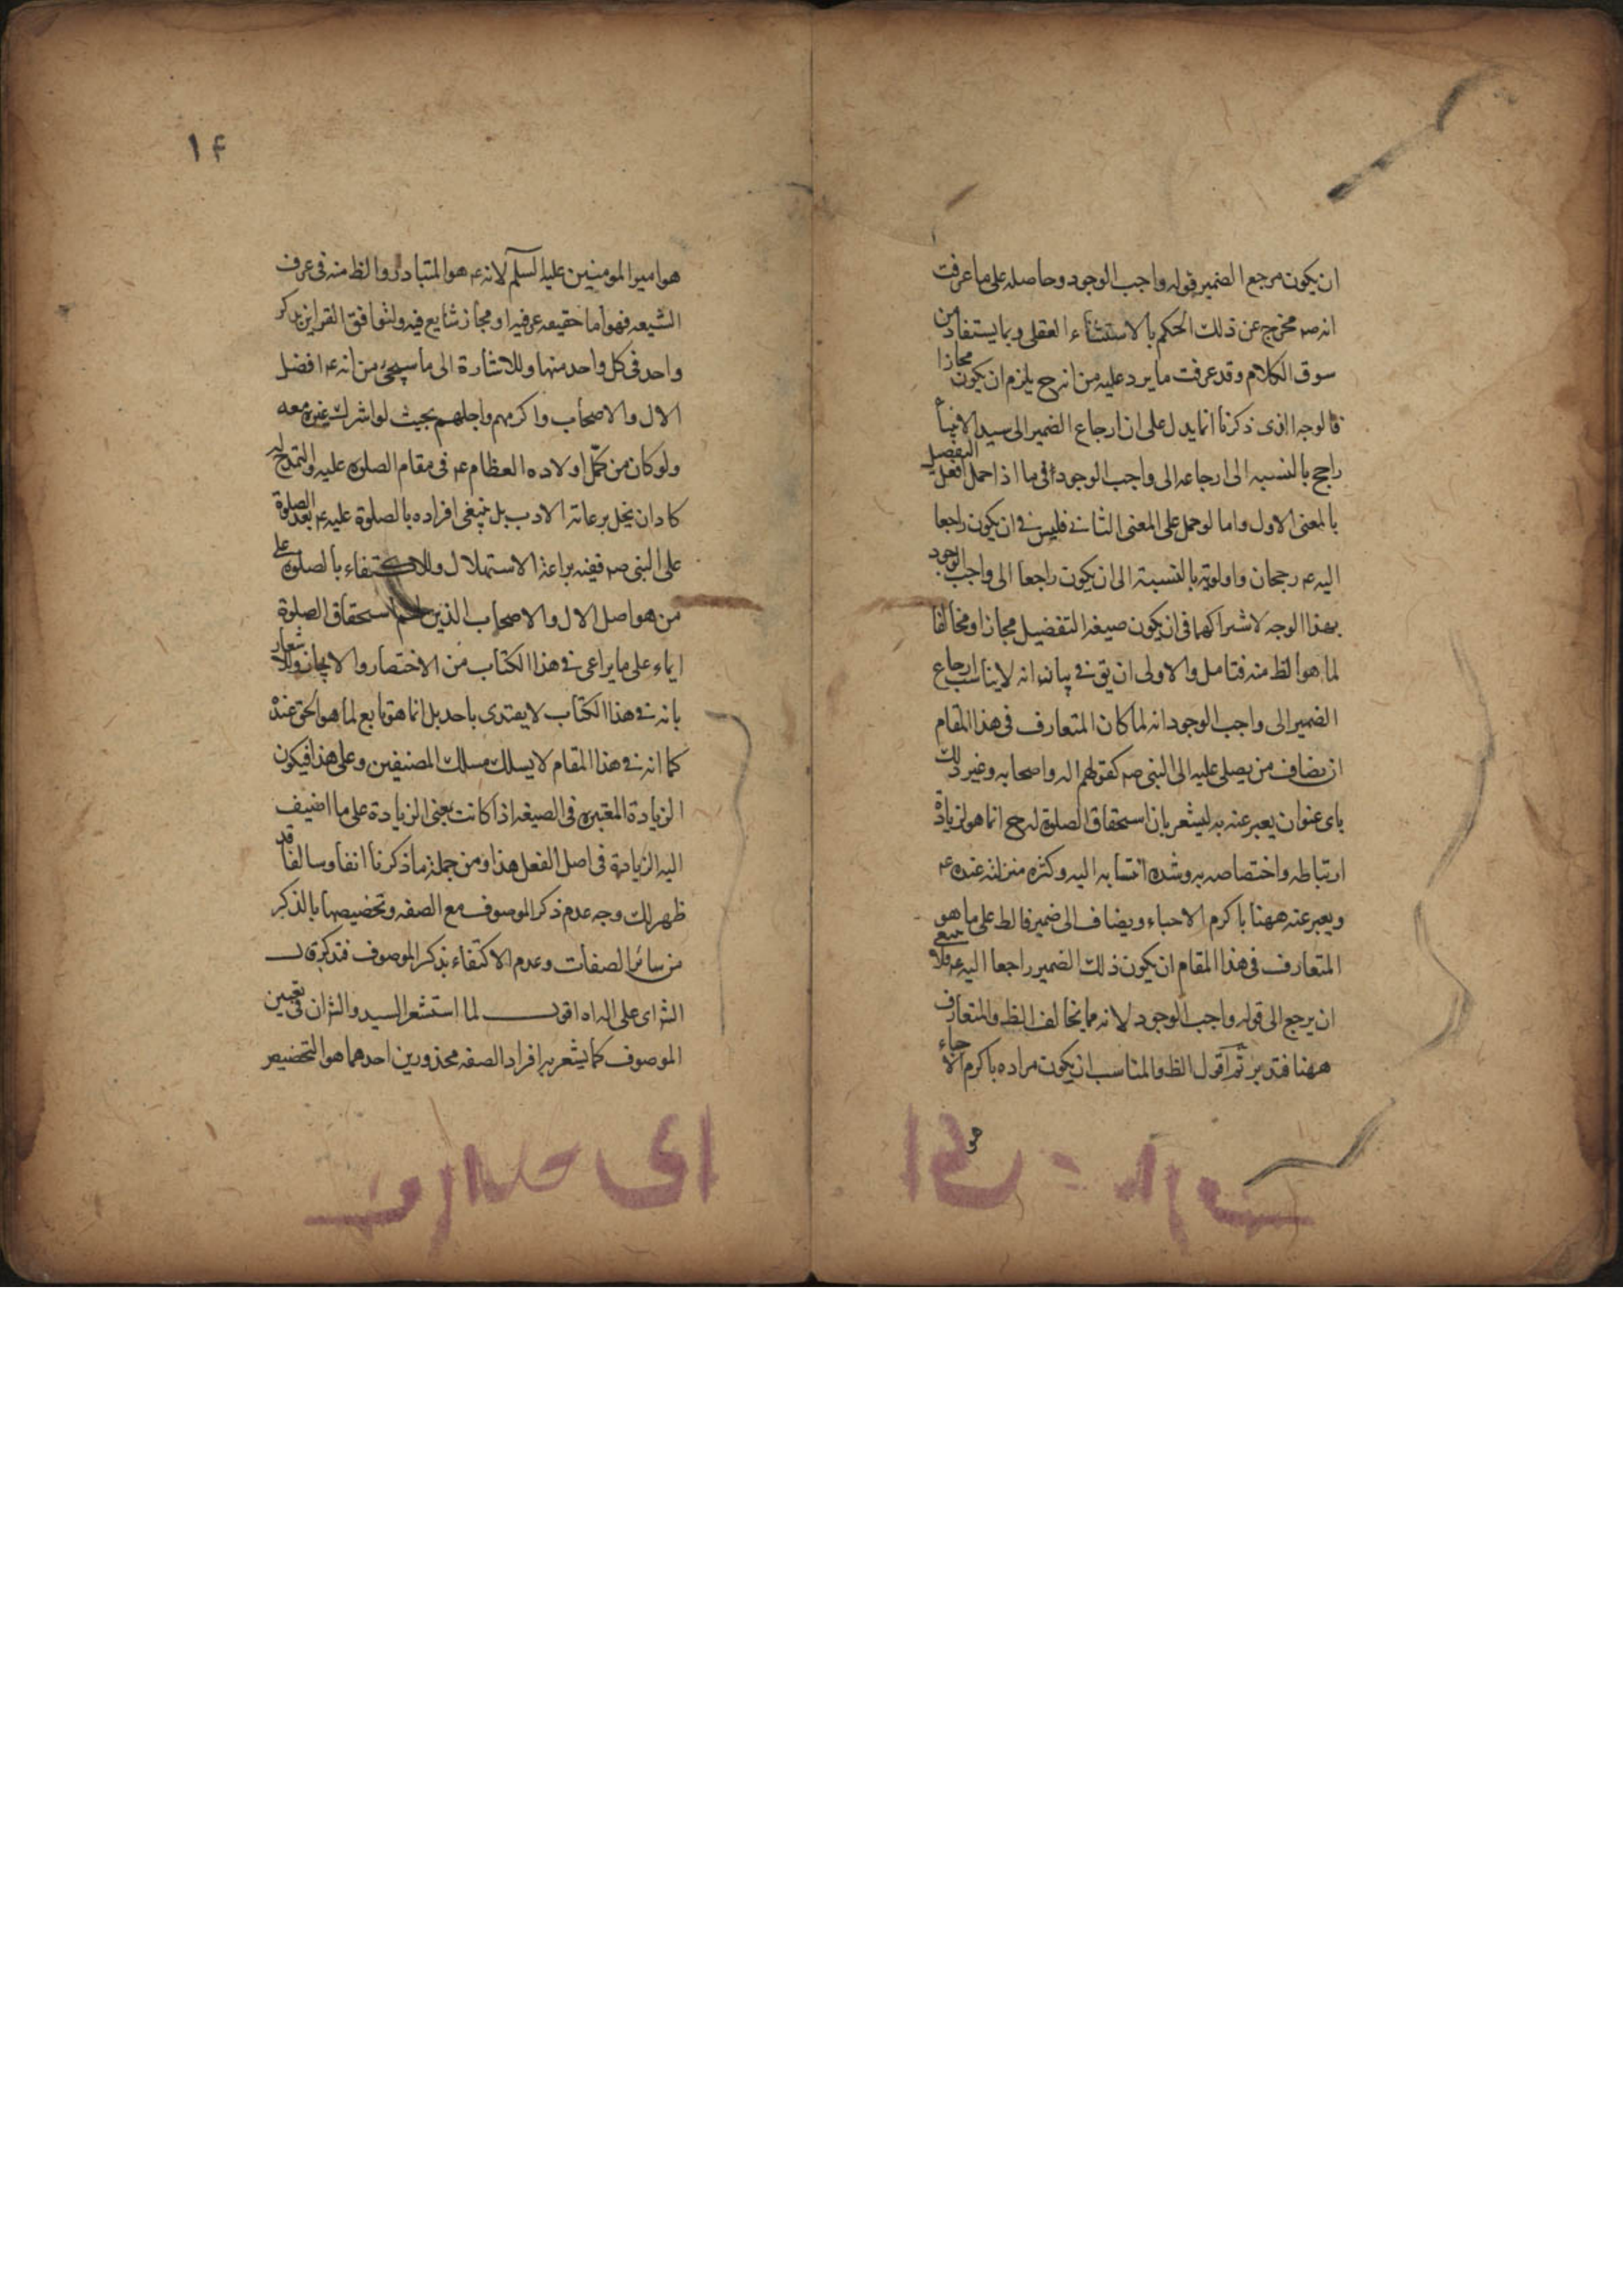 ان يكون مرجع الضمير قوله واجب الوجود وحاصله على ما عرفت
انه صه مخرج عن ذلك الحكم بالاستثناء العقلى وبما يستفاد من
سوق الكلام وقد عرفت ما يرد عليه من انه ح يلزم ان يكون مجازا
فالوجه الذى ذكرنا انما يدل على ان ارجاع الضمير الى سيد الانبيا
راجح بالنسبه الى ارجاعه الى واجب الوجود فى ما اذا حمل افعل التفضيل
بالمعنى الاول واما لو حمل على المعنى الثانى فليس فى ان يكون راجعا
اليه عه رجحان واولويه بالنسبة الى ان يكون راجعا الى واجب الوجود
بهذا الوجه لاشتراكهما فى ان يكون صيغه التفضيل مجازا ومخالفا
لما هو الظ منه فتامل والاولى ان يق فى بيان انه لا يناسب ارجاع
الضمير الى واجب الوجود انه لما كان المتعارف فى هذا المقام
ان يضاف من يصلى عليه الى النبى صه كقولهم اله واصحابه وغير ذلك
باى عنوان يعبر عنه به ليشعر بان استحقاق الصلوة له ح انما هو لزيادة
ارتباطه واختصاصه به وشده انتسابه اليه وكثره منزلته عنده عه
ويعبر عنه ههنا باكرم الاحباء ويضاف الى ضمير فالظ على ما هو
المتعارف فى هذا المقام ان يكون ذلك الضمير راجعا اليه عه فلا ينبغى
ان يرجع الى قوله واجب الوجود لانه مما يخالف الظ والمتعارف
ههنا فتدبر ثم اقول الظ والمناسب ان يكون مراده باكرم الاحباء
هو
١۴
هو امير المومنين عليه السلم لانه عه هو المتبادر والظ منه فى عرف
الشيعه فهو اما حقيقه عرفيه او مجاز شايع فيه ولتوافق القراين بذكر
واحد فى كل واحد منها وللاشارة الى ما سيجئ من انه عه افضل
الال والاصحاب واكرمهم واجلهم بحيث لو اشرك غيره معه
ولو كان من كمّل اولاده العظام عه فى مقام الصلوه عليه والتمدح له
كاد ان يخل برعاية الادب بل ينبغى افراده بالصلوة عليه عه بعد الصلوة
على النبى صه ففيه براعة الاستهلال وللاكتفاء بالصلوه على
من هو اصل الال والاصحاب الذين لهم استحقاق الصلوة
ايماء على ما يراعى فى هذا الكتاب من الاختصار والايجاز والاشعار
بانه فى هذا الكتاب لا يقتدى باحد بل انما هو تابع لما هو الحق عنده
كما انه فى هذا المقام لا يسلك مسلك المصنفين وعلى هذا فيكون
الزيادة المعتبره فى الصيغه اذا كانت بمعنى الزيادة على ما اضيف
اليه الزيادة فى اصل الفعل هذا ومن جملة ما ذكرنا انفا وسالفا قد
ظهر لك وجه عدم ذكر الموصوف مع الصفه وتخصيصها بالذكر
من سائر الصفات وعدم الاكتفاء بذكر الموصوف فتذكر قال
الش اى على اله اه اقول لما استشعر السيد والش ان فى تعيين
الموصوف كما يشعر به افراد الصفه محذورين احدهما هو التخصيص